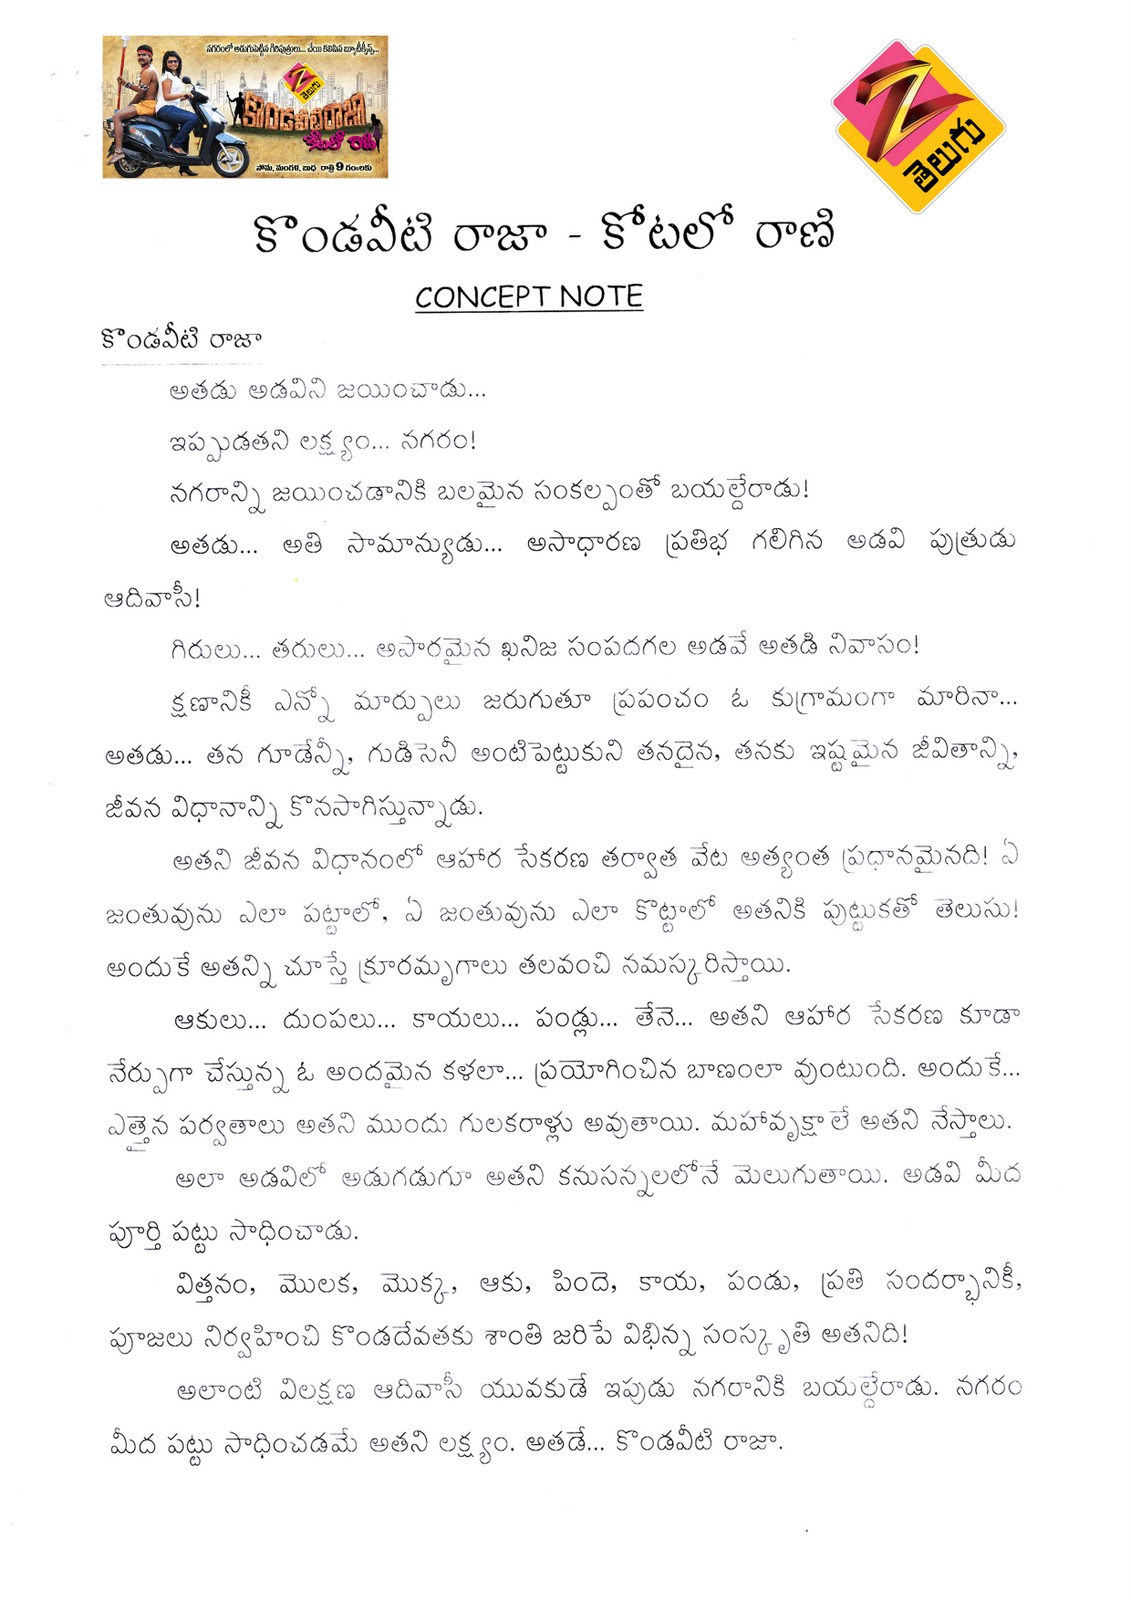 నగరంలో అడుగుపెట్టిన గిరిపుత్రులు... చేయి కలిపిన బ్యూటీక్వీన్స్...
తెలుగు
కొండవీటి రాజా
కోటలో రాణి
సోమ, మంగళ, బుధ రాత్రి 9 గంటలకు
తెలుగు
కొండవీటి రాజా - కోటలో రాణి
CONCEPT NOTE
కొండవీటి రాజా
అతడు అడవిని జయించాడు...
ఇప్పుడతని లక్ష్యం... నగరం!
నగరాన్ని జయించడానికి బలమైన సంకల్పంతో బయల్దేరాడు!
అతడు... అతి సామాన్యుడు... అసాధారణ ప్రతిభ గలిగిన అడవి పుత్రుడు
ఆదివాసీ!
గిరులు... తరులు... అపారమైన ఖనిజ సంపదగల అడవే అతడి నివాసం!
క్షణానికీ ఎన్నో మార్పులు జరుగుతూ ప్రపంచం ఓ కుగ్రామంగా మారినా...
అతడు... తన గూడేన్నీ, గుడిసెనీ అంటిపెట్టుకుని తనదైన, తనకు ఇష్టమైన జీవితాన్ని,
జీవన విధానాన్ని కొనసాగిస్తున్నాడు.
అతని జీవన విధానంలో ఆహార సేకరణ తర్వాత వేట అత్యంత ప్రధానమైనది! ఏ
జంతువును ఎలా పట్టాలో, ఏ జంతువును ఎలా కొట్టాలో అతనికి పుట్టుకతో తెలుసు!
అందుకే అతన్ని చూస్తే క్రూరమృగాలు తలవంచి నమస్కరిస్తాయి.
ఆకులు... దుంపలు... కాయలు... పండ్లు... తేనె... అతని ఆహార సేకరణ కూడా
నేర్పుగా చేస్తున్న ఓ అందమైన కళలా... ప్రయోగించిన బాణంలా వుంటుంది. అందుకే...
ఎత్తైన పర్వతాలు అతని ముందు గులకరాళ్లు అవుతాయి. మహావృక్షాలే అతని నేస్తాలు.
అలా అడవిలో అడుగడుగూ అతని కనుసన్నలలోనే మెలుగుతాయి. అడవి మీద
పూర్తి పట్టు సాధించాడు.
విత్తనం, మొలక, మొక్క, ఆకు, పిందె, కాయ, పండు, ప్రతి సందర్భానికీ,
పూజలు నిర్వహించి కొండదేవతకు శాంతి జరిపే విభిన్న సంస్కృతి అతనిది!
అలాంటి విలక్షణ ఆదివాసీ యువకుడే ఇపుడు నగరానికి బయల్దేరాడు. నగరం
మీద పట్టు సాధించడమే అతని లక్ష్యం. అతడే... కొండవీటి రాజా.